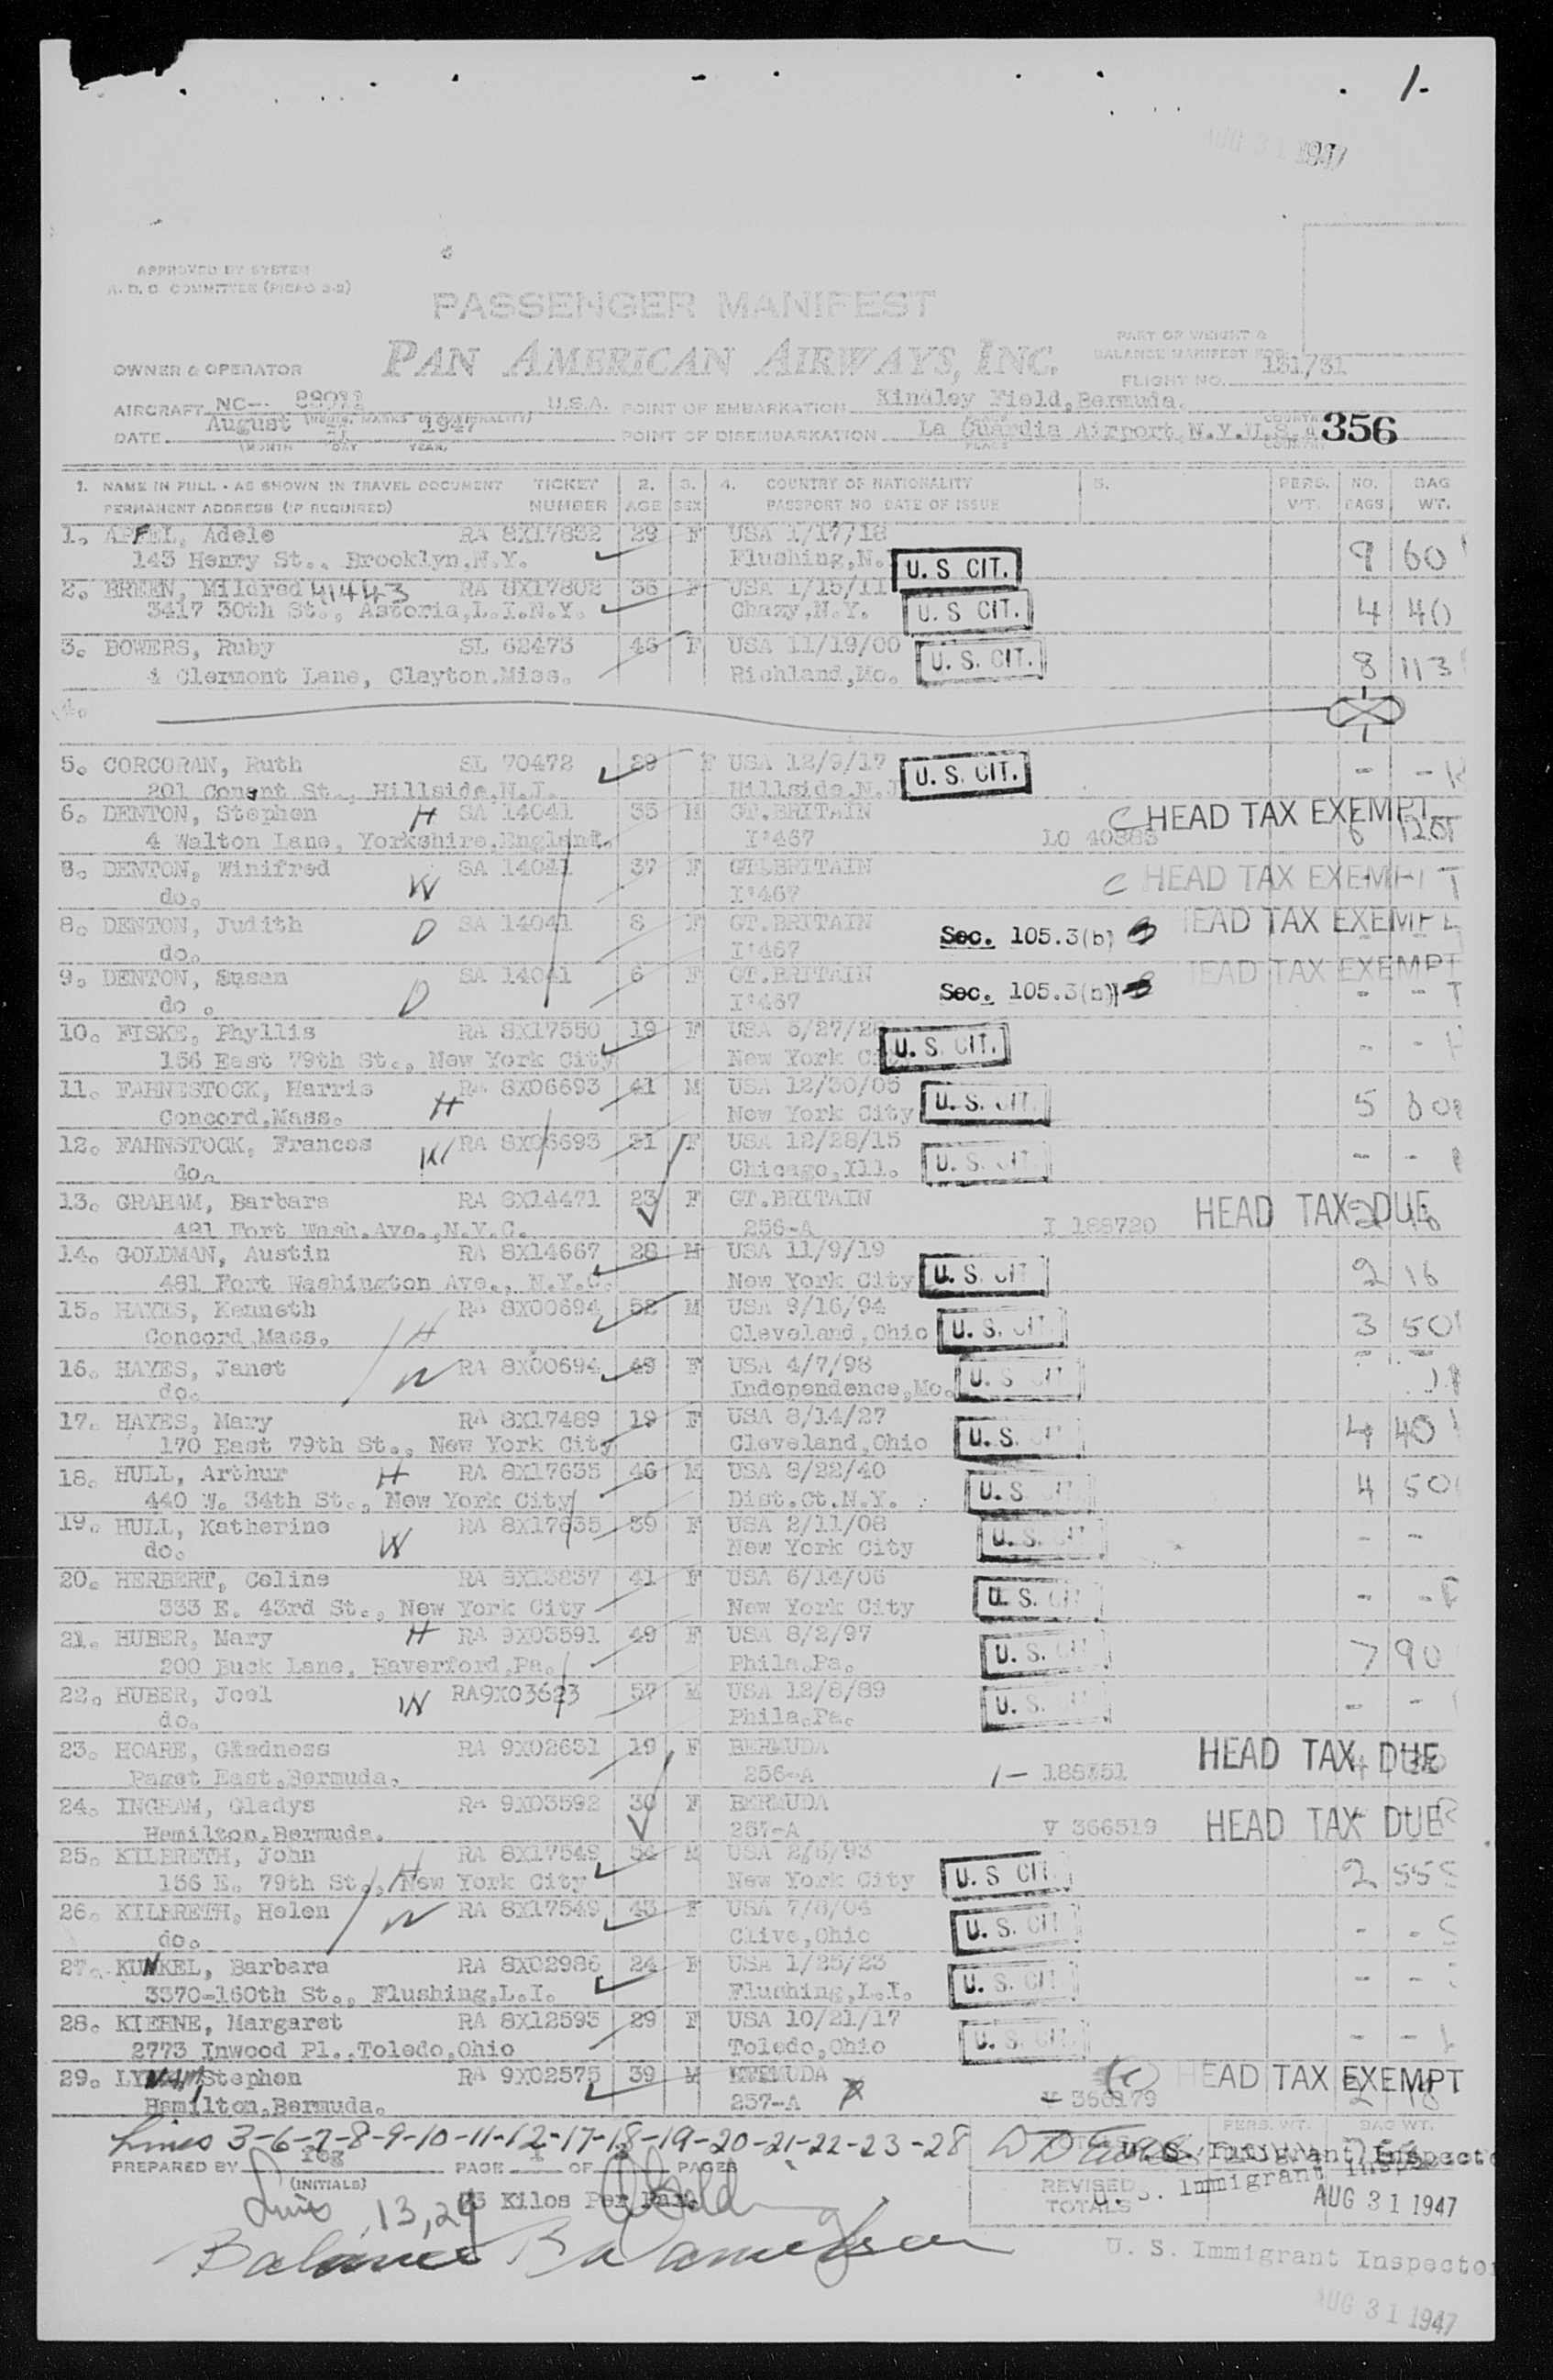 1-
AUG 31 1947
APPROVED BY SYSTEM
A. D. C. COMMITTEE (PICAO 2-2)
PASSENGER MANIFEST
PART OF WEIGHT &
BALANCE MANIFEST FOR
OWNER & OPERATOR PAN AMERICAN AIRWAYS, INC.
FLIGHT NO. 131/31
AIRCRAFT NC- U.S.A. POINT OF EMBARKATION Kindley Field, Bermuda.
DATE August 31 1947 POINT OF DISEMBARKATION La Guardia Airport, N.Y.U.S.A 356
(MONTH DAY YEAR) PLACE COUNTRY
1. NAME IN FULL - AS SHOWN IN TRAVEL DOCUMENT TICKET 2. 3. 4. COUNTRY OF NATIONALITY 5. PERS. NO. BAG
PERMANENT ADDRESS (IF REQUIRED) NUMBER AGE SEX PASSPORT NO DATE OF ISSUE WT. BAGS WT.
1. APFEL, Adele RA 8X17832 29 F USA 1/17/18
143 Henry St., Brooklyn.N.Y. Flushing,N. U. S CIT. 9 60
2. BREEN, Mildred 41443 RA 8X17802 36 F USA 1/15/11
3417 30th St., Astoria,L.I.N.Y. Chazy,N.Y. U. S CIT. 4 40
3. BOWERS, Ruby SL 62473 46 F USA 11/19/00
4 Clermont Lane, Clayton.Miss. Richland,Mo. U. S. CIT. 8 113
4.
5. CORCORAN, Ruth SL 70472 29 F USA 12/9/17
201 Conant St., Hillside,N.J. Hillside,N.J U. S. CIT. - -
6. DENTON, Stephen H SA 14041 35 M GT.BRITAIN C HEAD TAX EXEMPT
4 Walton Lane, Yorkshire.England. I'467 LO 40383
8. DENTON, Winifred SA 14041 37 F GT.BRITAIN
do. W I'467 C HEAD TAX EXEMPT
8. DENTON, Judith D SA 14041 8 F GT.BRITAIN HEAD TAX EXEMPT
do. I'467 Sec. 105.3(b)
9. DENTON, Susan SA 14041 6 F GT.BRITAIN HEAD TAX EXEMPT
do . D I'467 Sec. 105.3(b) - - T
10. FISKE, Phyllis RA 8X17550 19 F USA 5/27/28
156 East 79th St., New York City New York City U. S. CIT. - -
11. FAHNESTOCK, Harris RA 8X06693 41 M USA 12/30/05
Concord,Mass. H New York City U. S. CIT. 5
12. FAHNSTOCK, Frances W RA 8X06693 31 F USA 12/28/15
do. Chicago,Ill. U. S. CIT - -
13. GRAHAM, Barbara RA 8X14471 23 F GT.BRITAIN
481 Fort Wash.Ave.,N.Y.C. 256-A I 188720 HEAD TAX DUE
14. GOLDMAN, Austin RA 8X14667 28 M USA 11/9/19
481 Fort Washington Ave., N.Y.C. New York City U. S. CIT 2 16
15. HAYES, Kenneth RA 8X00694 52 M USA 9/16/94
Concord,Mass. H Cleveland,Ohio U. S. CIT 3 50
16. HAYES, Janet W RA 8X00694 49 F USA 4/7/98
do. Independence,Mo. U. S CIT - -
17. HAYES, Mary RA 8X17489 19 F USA 8/14/27
170 East 79th St., New York City Cleveland,Ohio U. S. CIT 4 40
18. HULL, Arthur H RA 8X17635 46 M USA 8/22/40
440 W. 34th St., New York City Dist.Ct.N.Y. U. S CIT 4 50
19. HULL, Katherine RA 8X17635 39 F USA 2/11/08
do. W New York City U. S. CIT - -
20. HERBERT, Celine RA 8X13837 41 F USA 6/14/06
333 E. 43rd St., New York City New York City U. S. CIT - -
21. HUBER, Mary H RA 9X03591 49 F USA 8/2/97
200 Buck Lane, Haverford,Pa. Phila.Pa. U. S. CIT 7 90
22. HUBER, Joel W RA9X03623 57 M USA 12/8/89
do. Phila.Pa. U. S. CIT - -
23. HOARE, Gladness RA 9X02631 19 F BERMUDA HEAD TAX DUE
Paget East,Bermuda. 256-A 1-
24. INGHAM, Gladys RA 9X03592 30 F BERMUDA
Hamilton,Bermuda. 257-A V 366519 HEAD TAX DUE
25. KILBRETH, John RA 8X17549 54 M USA 2/6/93
156 E. 79th St., H New York City New York City U. S CIT. 2 55
26. KILBRETH, Helen W RA 8X17549 43 F USA 7/8/04
do. Clive,Ohio U. S. CIT - -
27. KUNKEL, Barbara RA 8X02986 24 F USA 1/25/23
3370-160th St., Flushing,L.I. Flushing,L.I. U. S. CIT - -
28. KIERNE, Margaret RA 8X12593 29 F USA 10/21/17
2773 Inwood Pl.,Toledo,Ohio Toledo,Ohio U. S. CIT - -
29. Stephen RA 9X02575 39 M BERMUDA (c) HEAD TAX EXEMPT
Hamilton,Bermuda. 257-A X 2 18
Lines 3-6-7-8-9-10-11-12-17-18-19-20-21-22-23-28 PERS. WT. BAG WT.
U. S. Immigrant Inspector
PREPARED BY feg PAGE 1 OF PAGES
(INITIALS) REVISED TOTALS U. S. Immigrant Inspec
Lines 13, 29 Kilos Per AUG 31 1947
Balance
U. S. Immigrant Inspector
AUG 31 1947